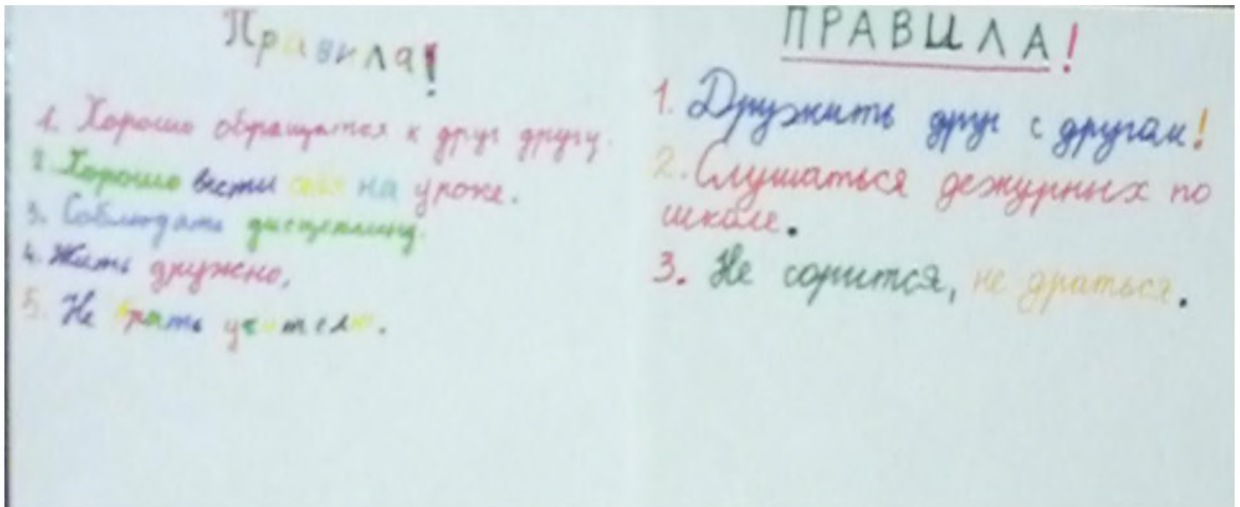 Правила!
1. Хорошо обращатся к друг другу.
2. Хорошо вести себя на уроке.
3. Соблюдать дисцеплину.
4. Жить дружно,
5. Не врать учителю.
ПРАВИЛА!
1. Дружить друг с другом!
2. Слушаться дежурных по
школе.
3. Не сорится, не драться.